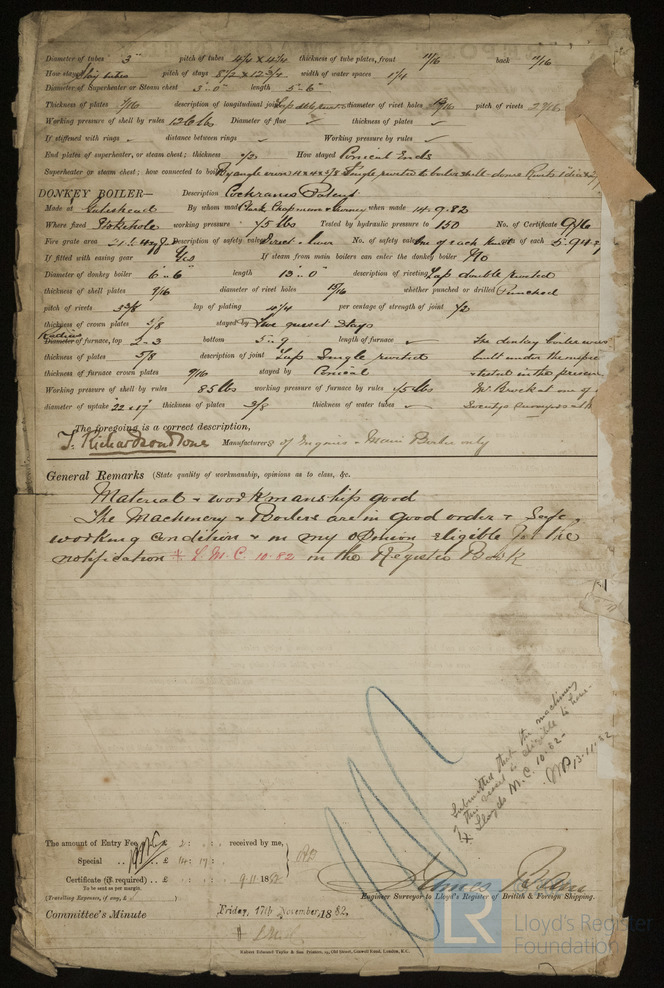 Diameter of tubes 3" pitch of tubes 4 1/4 x 4 1/4 thickness of tube plates, front 11/16 back 11/16
How stayed Stay tubes pitch of stays 8 1/2 x 12 3/4 width of water spaces 1 1/4
Diameter of Superheater or Steam chest 3'-0" length 5'-6"
Thickness of plates 7/16 description of longitudinal joint Lap dble diameter of rivet holes 13/16 pitch of rivets
Working pressure of shell by rules 126 lbs Diameter of flue ✓ thickness of plates ✓
If stiffened with rings ✓ distance between rings ✓ Working pressure by rules ✓
End plates of superheater, or steam chest; thickness 1/2 How stayed Conical Ends
Superheater or steam chest; how connected to boiler By angle iron single riveted to boiler shell
DONKEY BOILER— Description Cochranes Patent
Made at Gateshead By whom made Clark Chapman & Gurney when made 14.9.82
Where fixed Stokehole working pressure 75 lbs Tested by hydraulic pressure to 150 No. of Certificate 916
Fire grate area 21 1/2 sq ft Description of safety valves Direct & Lever No. of safety valves One of each kind of each 5.94
If fitted with easing gear Yes If steam from main boilers can enter the donkey boiler No
Diameter of donkey boiler 6'-6" length 13'-0" description of riveting Lap double riveted
thickness of shell plates 7/16 diameter of rivet holes 13/16 whether punched or drilled Punched
pitch of rivets 3 3/8 lap of plating 4 1/4 per centage of strength of joint 72
thickness of crown plates 5/8 stayed by Five gusset stays
Radius
Diameter of furnace, top 2-3 bottom 5-9 length of furnace ✓ The donkey boiler was
thickness of plates 5/8 description of joint Lap Single riveted built under the
thickness of furnace crown plates 9/16 stayed by Conical & tested in the presence
Working pressure of shell by rules 85 lbs working pressure of furnace by rules 75 lbs Mr Brock at one of
diameter of uptake 22 x 17 thickness of plates 3/8 thickness of water tubes ✓ Surveyors at
The foregoing is a correct description,
T. Richardson & Sons Manufacturers of Engines & Main Boiler only
General Remarks (State quality of workmanship, opinions as to class, &c.
Material & workmanship good
The Machinery & Boilers are in good order & Safe
working condition & in my opinion eligible for the
notification + L.M.C. 10.82 in the Register Book
Submitted that the machinery
of this vessel is eligible to have
+ Lloyds M.C. 10-82-
13-11-82
The amount of Entry Fee .. £ 2 : : received by me,
Special .. .. £ 14 : 17 :
Certificate (if required) .. £ : : 9.11 1882
To be sent as per margin.
(Travelling Expenses, if any, £ )
James
Engineer Surveyor to Lloyd's Register of British & Foreign Shipping.
Committee's Minute Friday, 17th November, 1882.
Lloyd's Register
LR Foundation